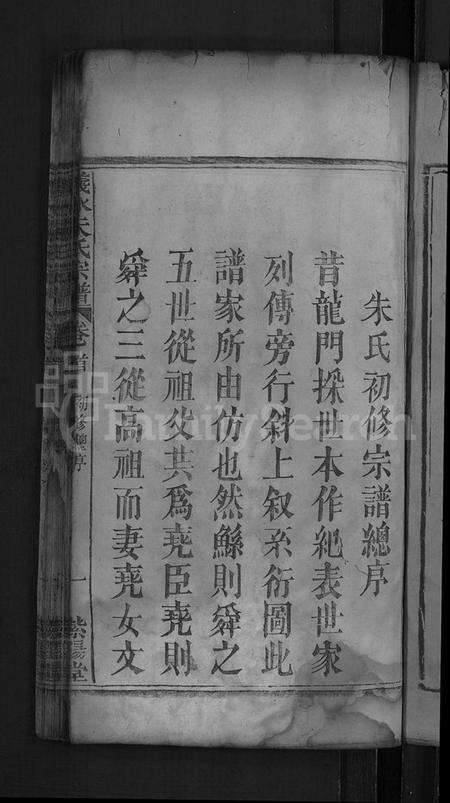 朱氏初修宗譜總序
昔龍門採世本作紀表世家
列傳旁行斜上叙系衍圖此
譜家所由仿也然鯀則舜之
五世從祖父其爲堯臣堯則
舜之三從高祖而妻堯女文
朱氏宗譜
卷首
初修總序
一
紫陽堂
FamilySearch